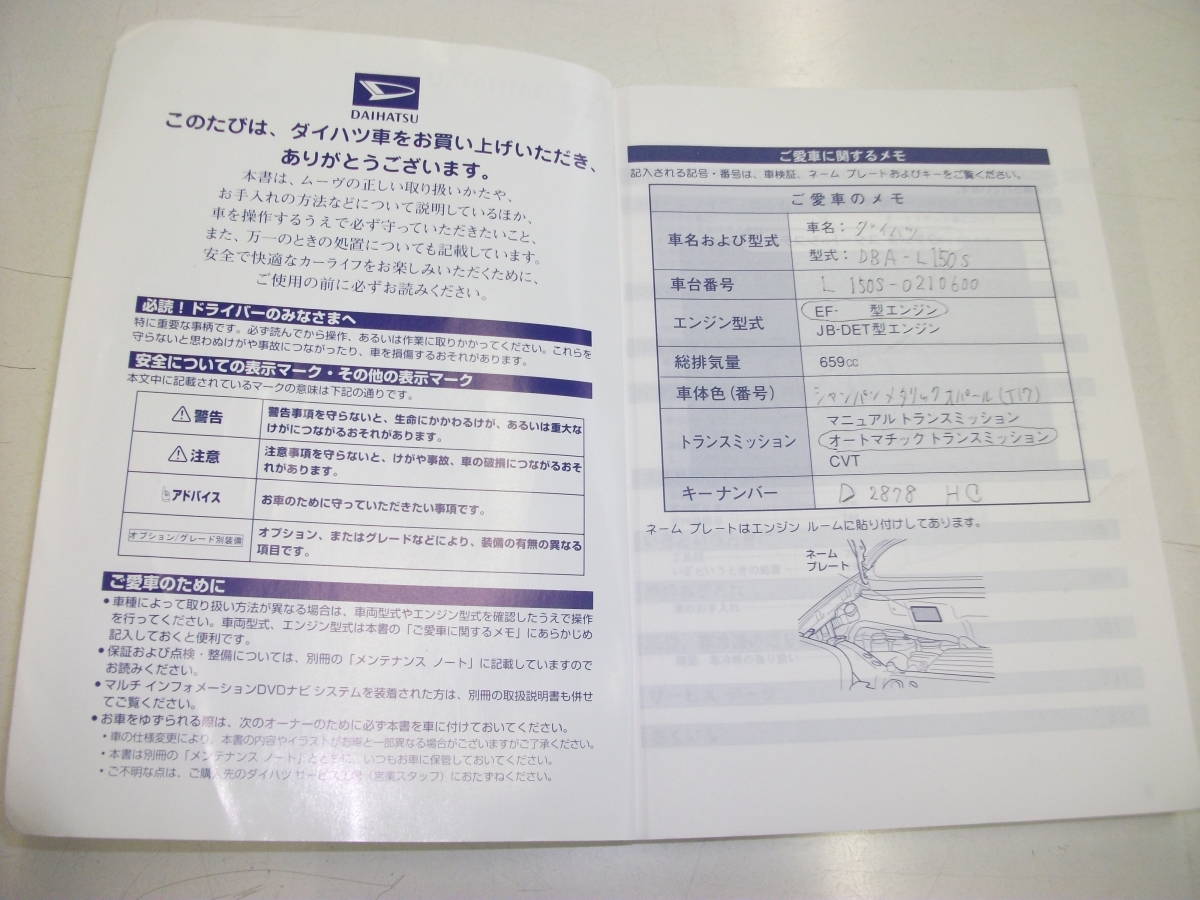 DAIHATSU
このたびは、ダイハツ車をお買い上げいただき、
ありがとうございます。
本書は、ムーヴの正しい取り扱いかたや、
お手入れの方法などについて説明しているほか、
車を操作するうえで必ず守っていただきたいこと、
また、万一のときの処置についても記載しています。
安全で快適なカーライフをお楽しみいただくために、
ご使用の前に必ずお読みください。
必読！ドライバーのみなさまへ
特に重要な事柄です。必ず読んでから操作、あるいは作業に取りかかってください。これらを
守らないと思わぬけがや事故につながったり、車を損傷するおそれがあります。
安全についての表示マーク・その他の表示マーク
本文中に記載されているマークの意味は下記の通りです。
警告
警告事項を守らないと、生命にかかわるけが、あるいは重大な
けがにつながるおそれがあります。
注意
注意事項を守らないと、けがや事故、車の破損につながるおそ
れがあります。
アドバイス
お車のために守っていただきたい事項です。
オプション/グレード別装備
オプション、またはグレードなどにより、装備の有無の異なる
項目です。
ご愛車のために
•車種によって取り扱い方法が異なる場合は、車両型式やエンジン型式を確認したうえで操作
を行ってください。車両型式、エンジン型式は本書の「ご愛車に関するメモ」にあらかじめ
記入しておくと便利です。
•保証および点検・整備については、別冊の「メンテナンス ノート」に記載していますので
お読みください。
•マルチ インフォメーションDVDナビ システムを装着された方は、別冊の取扱説明書も併せ
てご覧ください。
•お車をゆずられる際は、次のオーナーのために必ず本書を車に付けておいてください。
・車の仕様変更により、本書の内容やイラストがお車と一部異なる場合がございますがご了承ください。
・本書は別冊の「メンテナンス ノート」とともに、いつもお車に保管しておいてください。
・ご不明な点は、ご購入先のダイハツ サービス工場（営業スタッフ）におたずねください。
ご愛車に関するメモ
記入される記号・番号は、車検証、ネーム プレートおよびキーをご覧ください。
ご愛車のメモ
車名および型式
車名：ダイハツ
型式：DBA-L150S
車台番号
L150S-0210600
エンジン型式
EF- 型エンジン
JB-DET型エンジン
総排気量
659cc
車体色（番号）
シャンパンメタリックオパール(T17)
トランスミッション
マニュアル トランスミッション
オートマチック トランスミッション
CVT
キーナンバー
D 2878 HC
ネーム プレートはエンジン ルームに貼り付けしてあります。
ネーム
プレート